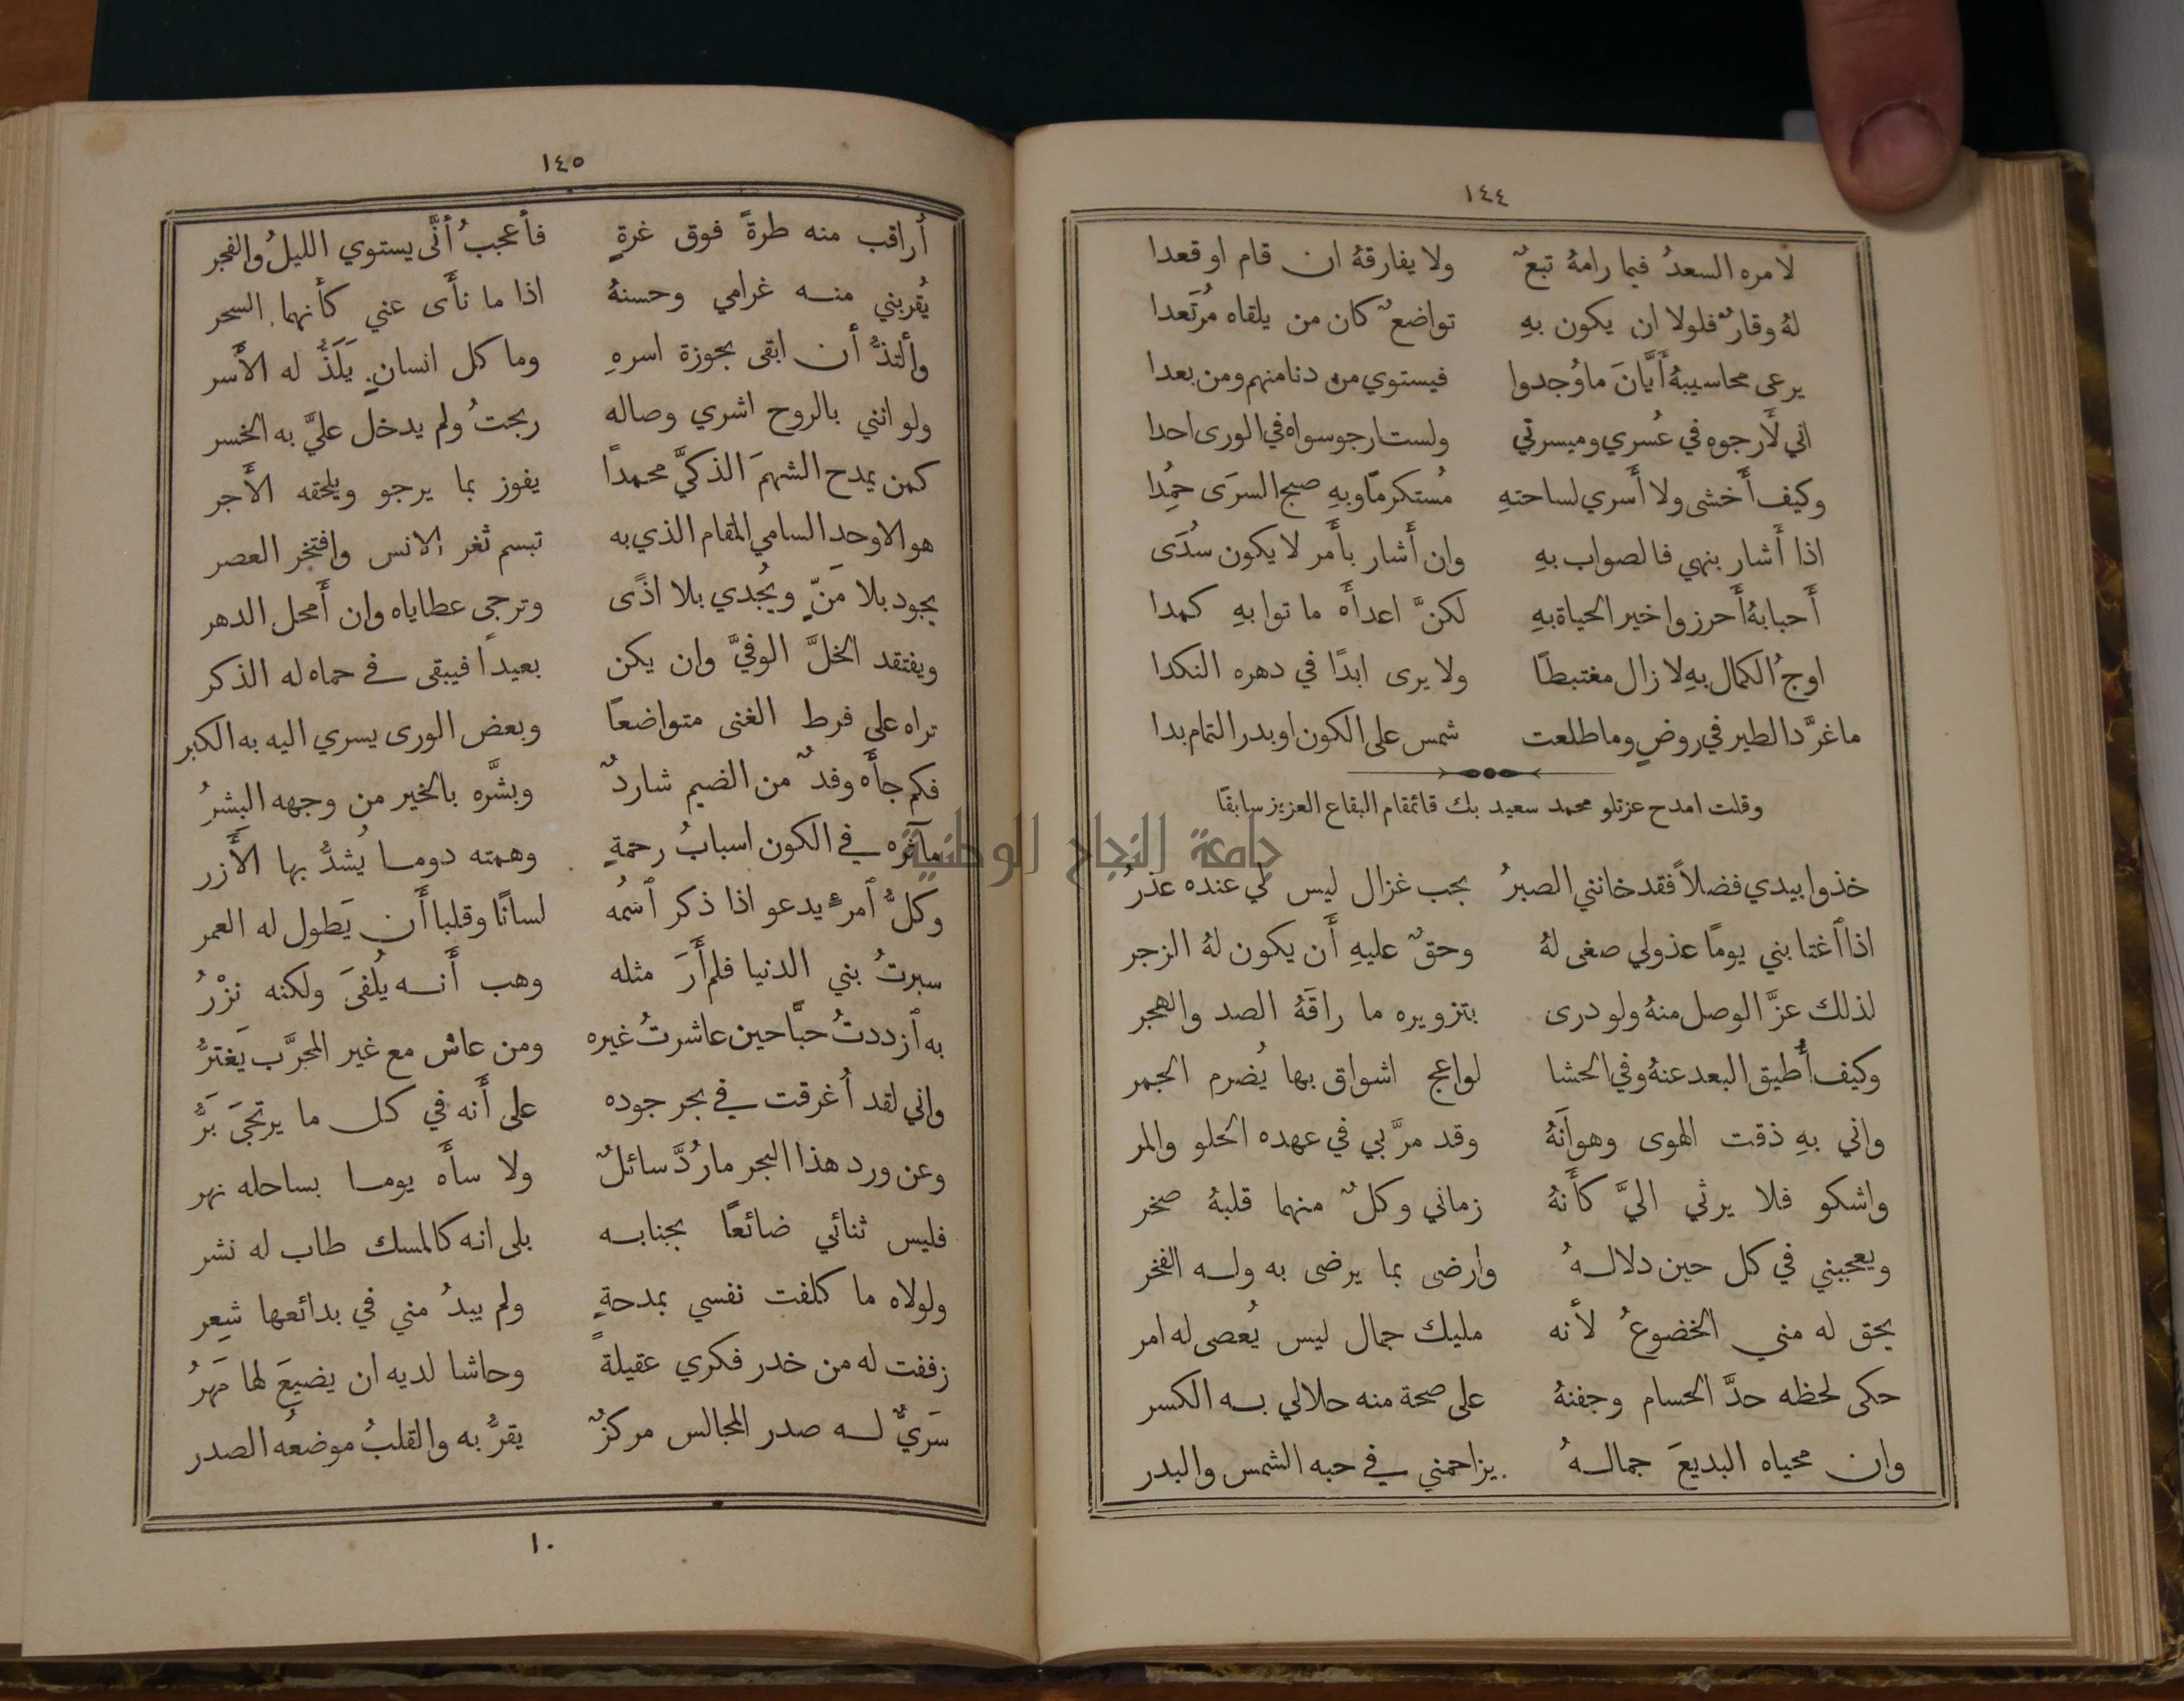 ١٤٤
لامره السعدُ فيما رامهُ تبعٌ ولا يفارقهُ ان قام او قعدا
لهُ وقارٌ فلولا ان يكون بهِ تواضعٌ كان من يلقاه مُرتَعدا
يرعى محاسيبهُ أَيَّانَ ما وُجدوا فيستوي من دنا منهم ومن بعدا
اني لَأرجوه في عُسري وميسرتي ولست ارجو سواه في الورى احدا
وكيف أَخشى ولا أَسري لساحتهِ مُستكرمًا وبهِ صبح السرَى حمُدِا
اذا أَشار بنهي فالصواب بهِ وان أَشار بأَمر لا يكون سُدَى
أَحبابهُ أَحرزوا خير الحياة بهِ لكنَّ اعدأَه ماتوا بهِ كمدا
اوجُ الكمال بهِ لا زال مغتبطًا ولا يرى ابدًا في دهره النكدا
ما غرَّد الطير في روضٍ وما طلعت شمس على الكون او بدر التمام بدا
وقلت امدح عزتلو محمد سعيد بك قائمقام البقاع العزيز سابقًا
خذوا بيدي فضلاً فقد خانني الصبرُ بحب غزال ليس لي عنده عذرُ
اذا ٱغتابني يومًا عذولي صغى لهُ وحقٌ عليهِ أَن يكون لهُ الزجر
لذلك عزَّ الوصل منهُ ولو درى بتزويره ما راقَهُ الصد والهجر
وكيف أُطيق البعد عنهُ وفي الحشا لواعج اشواق بها يُضرم الجمر
واني بهِ ذقت الهوى وهوانَهُ وقد مرَّ بي في عهده الحلو والمر
واشكو فلا يرثي اليَّ كأَنهُ زماني وكلٌ منهما قلبهُ صخر
ويعجبني في كل حين دلالهُ وارضى بما يرضى به وله الفخر
يحق له مني الخضوعُ لأنه مليك جمال ليس يُعصى له امر
حكى لحظه حدَّ الحسام وجفنهُ على صحة منه حلالي به الكسر
وان محياه البديعَ جمالهُ يزاحمني في حبه الشمس والبدر
١٤٥
أراقب منه طرةً فوق غرةٍ فأعجبُ أنَّى يستوي الليلُ والفجر
يُقربني منه غرامي وحسنهُ اذا ما نأَى عني كأنهما السحر
وألتذُّ أن ابقى بحوزة اسرهِ وما كل انسانٍ يَلَذُّ له الأَسر
ولو انني بالروح اشري وصاله ربحتُ ولم يدخل عليَّ به الخسر
كمن يمدح الشهمَ الذكيَّ محمداً يفوز بما يرجو ويلحقه الأَجر
هو الاوحد السامي المقام الذي به تبسم ثغر الانس وافتخر العصر
يجود بلا مَنّ ويُجدي بلا اذًى وترجى عطاياه وان أَمحل الدهر
ويفتقد الخلَّ الوفيَّ وان يكن بعيداً فيبقى في حماه له الذكر
تراه على فرط الغنى متواضعاً وبعض الورى يسري اليه به الكبر
فكم جأَه وفدٌ من الضيم شاردٌ وبشَّره بالخير من وجهه البشرُ
مآثره في الكون اسبابُ رحمةٍ وهمته دوما يُشدُّ بها الأَزر
وكلُّ ٱمرءٍ يدعو اذا ذكر ٱسمُه لسانًا وقلبا أَن يَطول له العمر
سبرتُ بني الدنيا فلم أَرَ مثله وهب أَنه يُلفىَ ولكنه نزْرُ
به ٱزددتُ حبًّا حين عاشرتُ غيره ومن عاش مع غير المجرَّب يَغترُّ
واني لقد أُغرقت في بحر جوده على أَنه في كل ما يرتجىَ بَرُّ
وعن ورد هذا البحر ما رُدَّ سائلٌ ولا سأَه يوما بساحله نهر
فليس ثنائي ضائعًا بجنابه بلى انه كالمسك طاب له نشر
ولولاه ما كلفت نفسي بمدحةٍ ولم يبدُ مني في بدائعها شِعر
زففت له من خدر فكري عقيلةً وحاشا لديه ان يضيعَ لها مَهرُ
سَريٌّ له صدر المجالس مركزٌ يقرُّ به والقلبُ موضعه الصدر
١٠
جامعة النجاح الوطنية